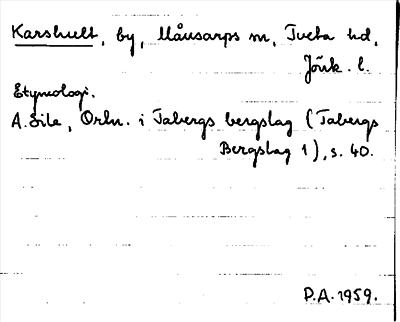 Karshult, by, Månsarps sn, Tveta hd,
Jönk. l.
Etymologi.
A. Eile, Ortn. i Tabergs bergslag (Tabergs
Bergslag 1), s. 40.
P.A. 1959.